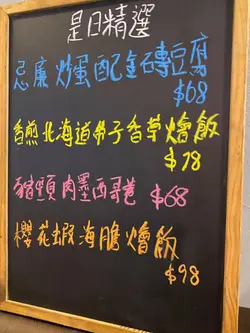 是日精選
忌廉炒蛋配金磚豆腐
$68
香煎北海道帶子香草燴飯
$78
豬頸肉墨西哥卷
$68
櫻花蝦海膽燴飯
$98